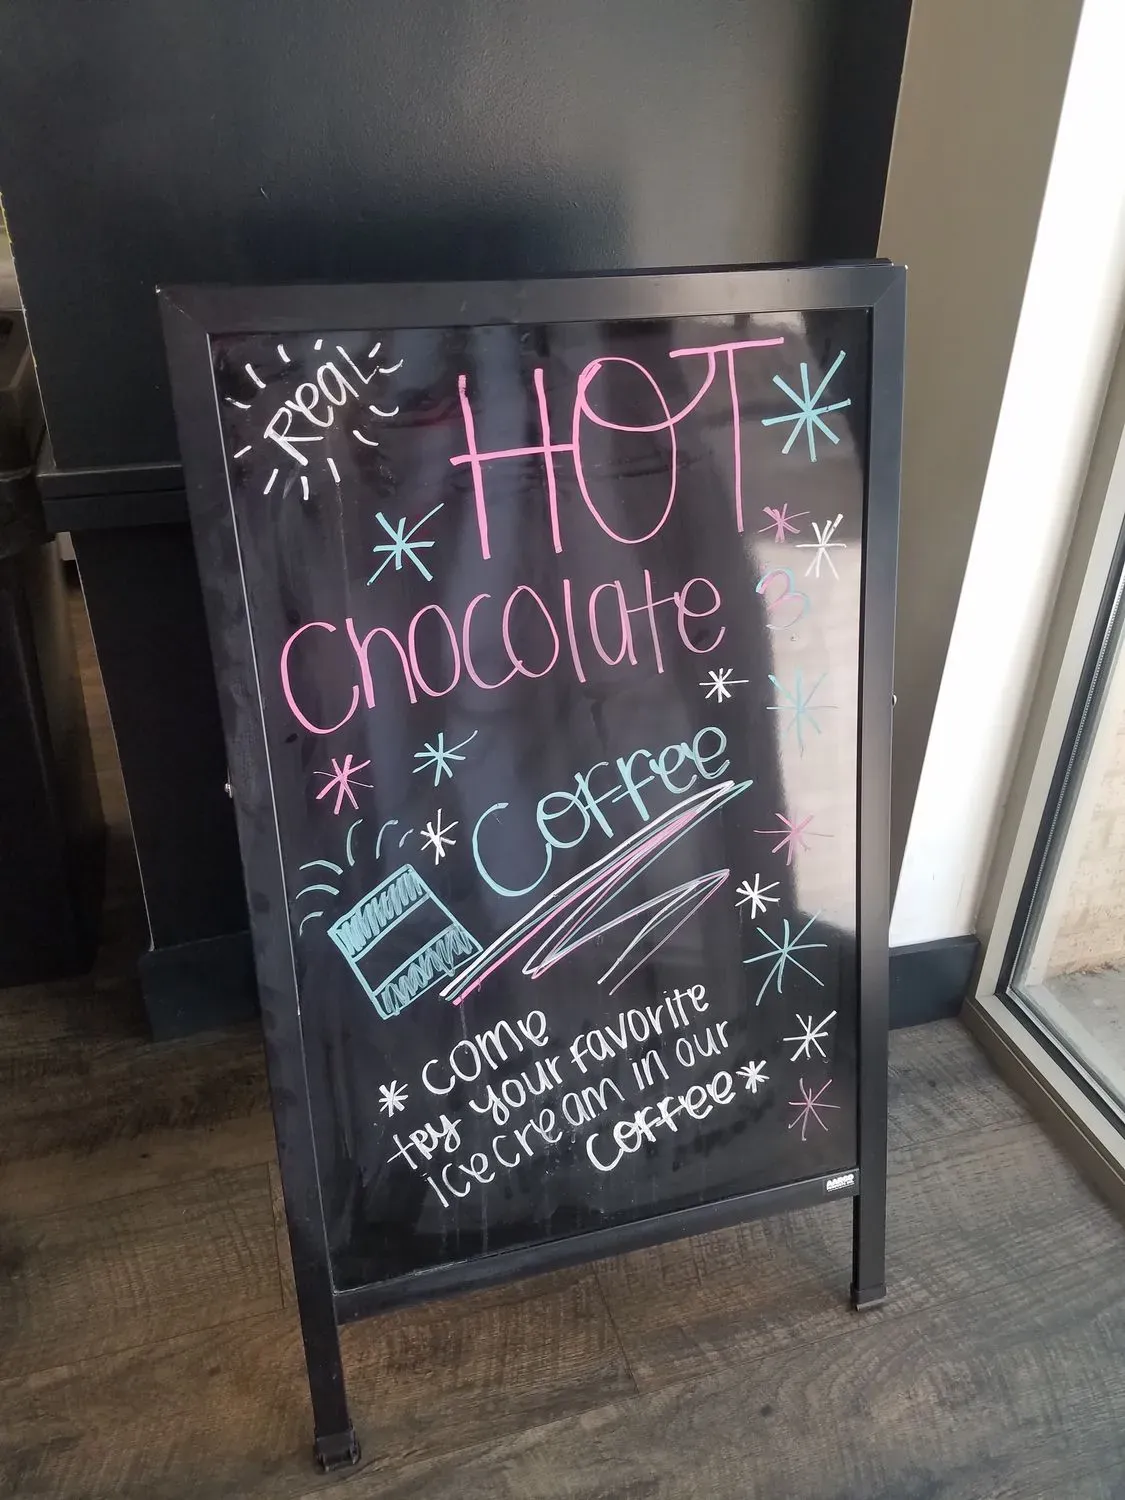 Real
HOT
Chocolate &
Coffee
* come
try your favorite
ice cream in our
coffee *
AARCO